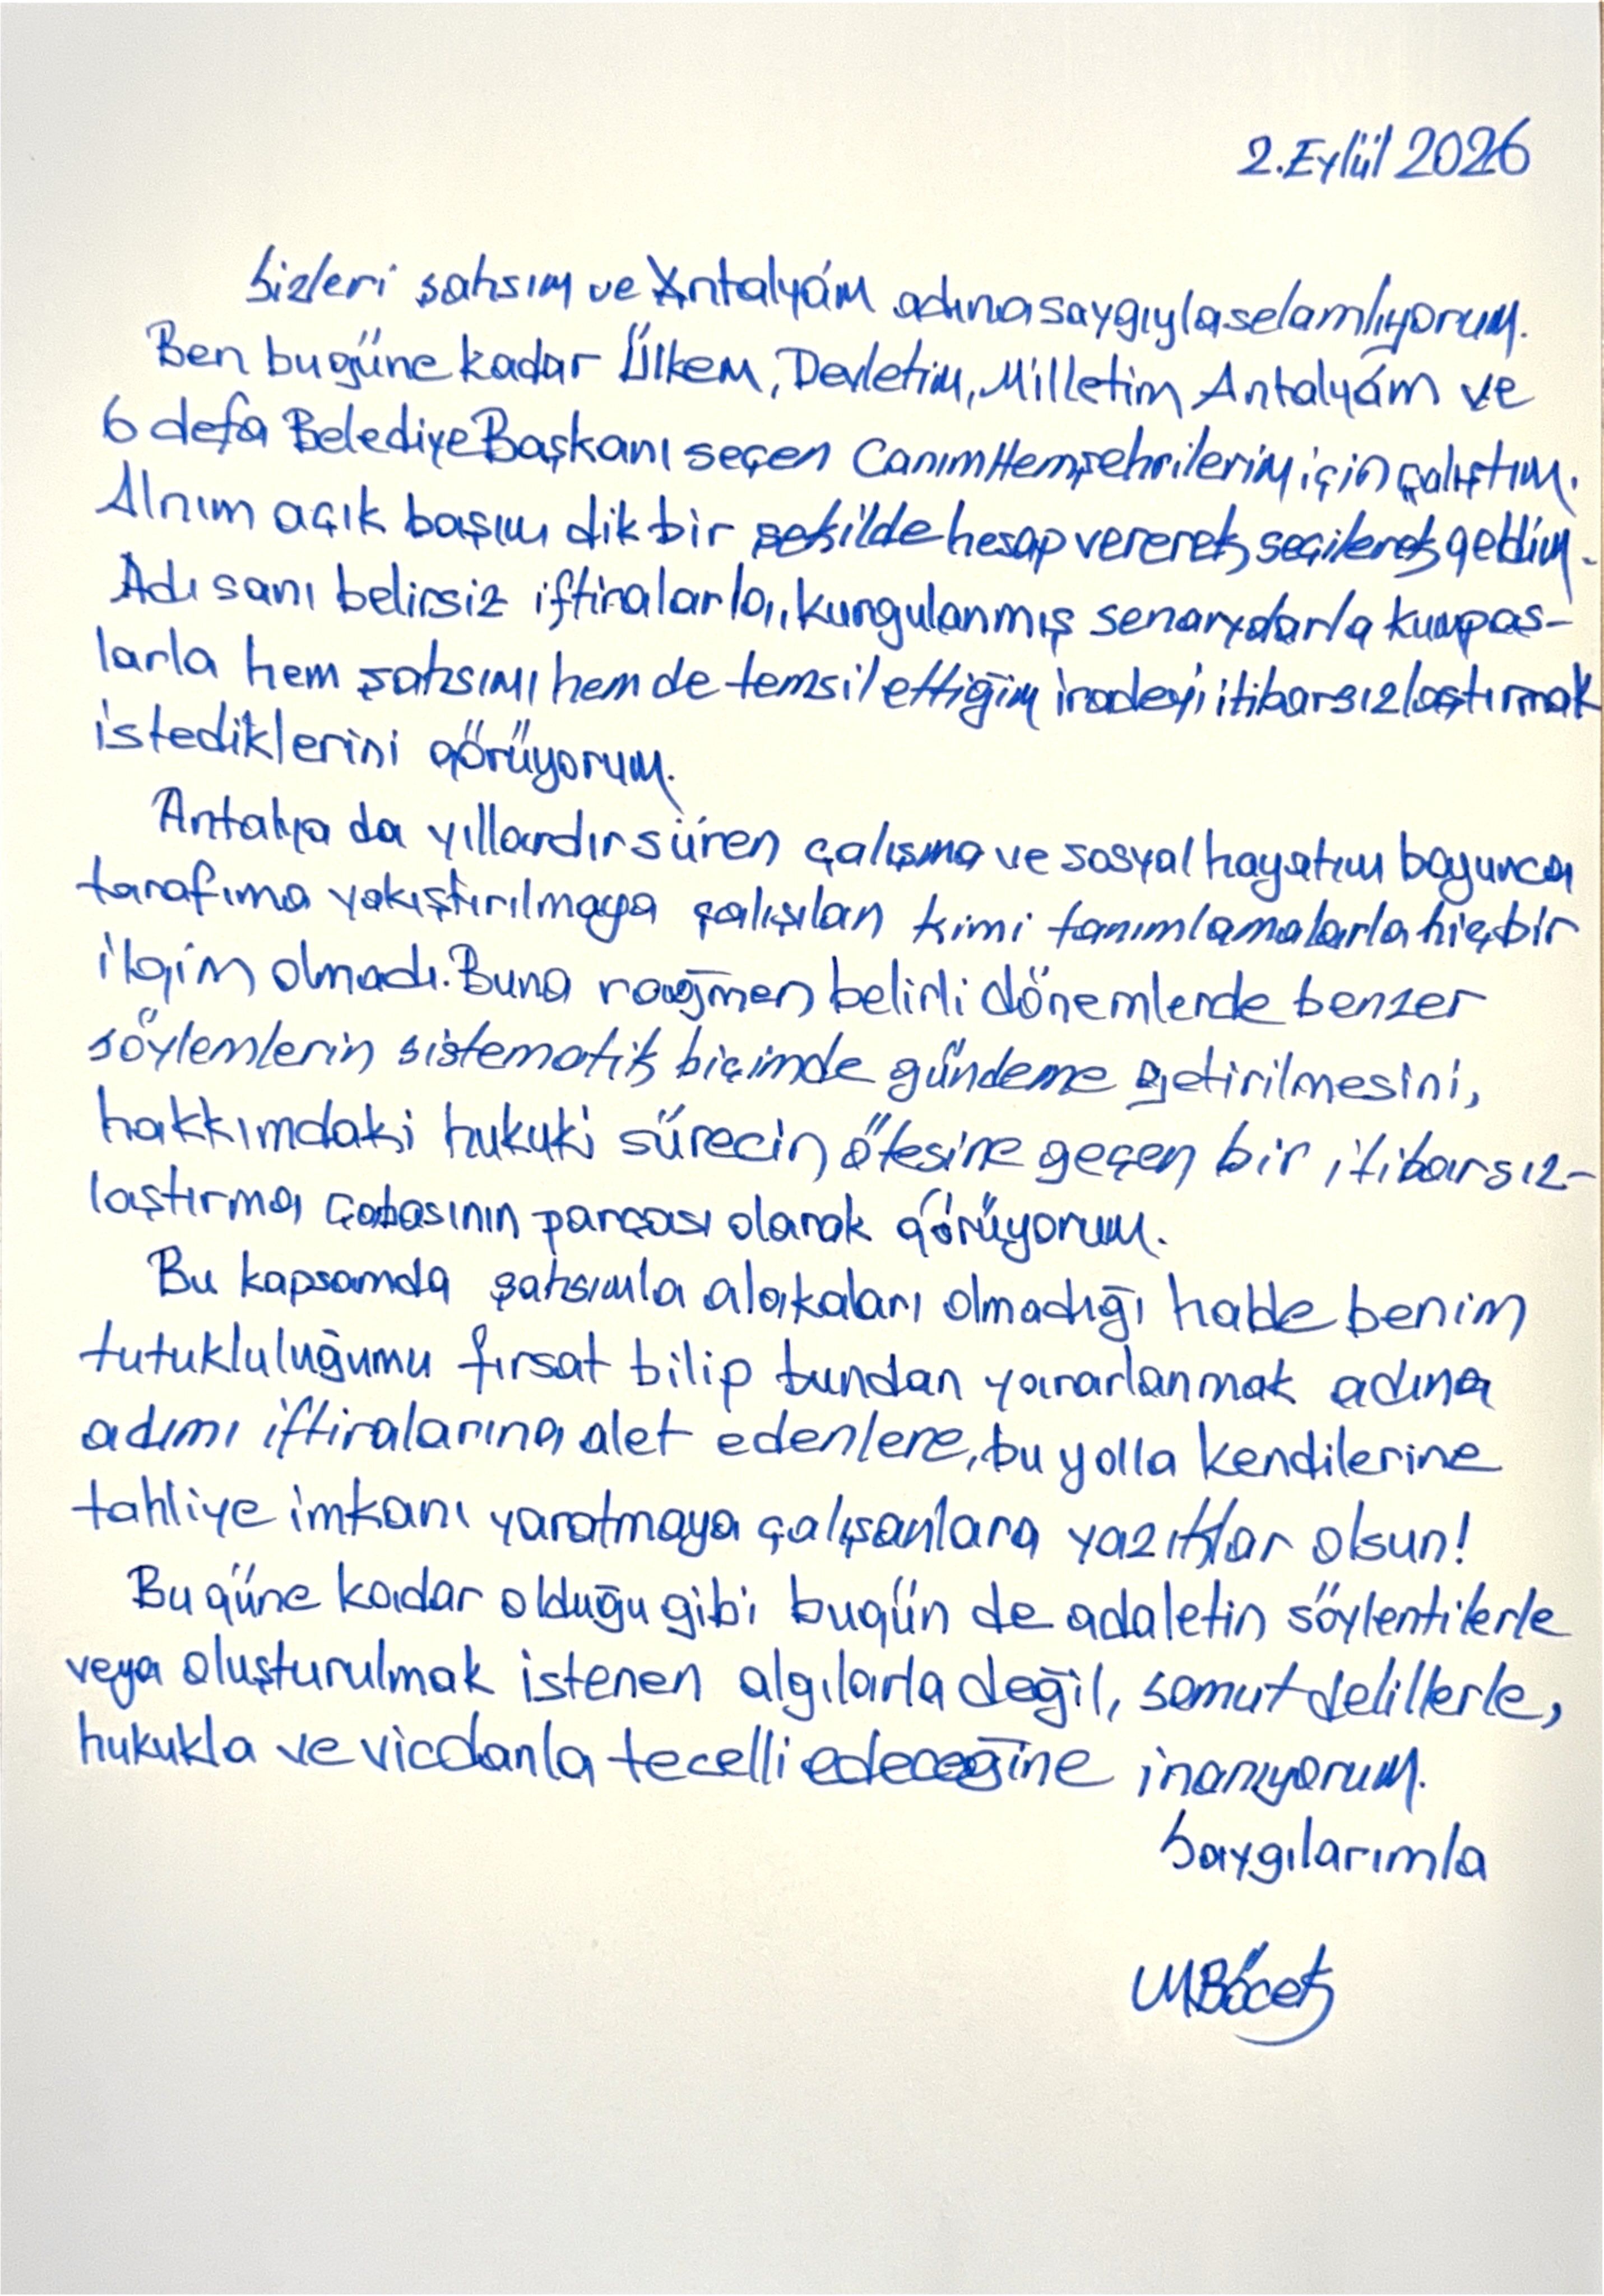 2.Eylül 2026
Sizleri şahsım ve Antalyám adına saygıyla selamlıyorum.
Ben bugüne kadar Ülkem, Devletim, Milletim Antalyám ve
6 defa Belediye Başkanı seçen Canım Hemşehrilerim için çalıştım.
Alnım açık başım dik bir şekilde hesap vererek, seçilerek geldim.
Adı sanı belirsiz iftiralarla, kurgulanmış senaryolarla kumpas-
larla hem şahsımı hem de temsil ettiğim iradeyi itibarsızlaştırmak
istediklerini görüyorum.
Antalya da yıllardır süren çalışma ve sosyal hayatım boyunca
tarafıma yakıştırılmaya çalışılan kimi tanımlamalarla hiçbir
ilgim olmadı. Buna rağmen belirli dönemlerde benzer
söylemlerin sistematik biçimde gündeme getirilmesini,
hakkımdaki hukuki sürecin ötesine geçen bir itibarsız-
laştırma çabasının parçası olarak görüyorum.
Bu kapsamda şahsımla alakaları olmadığı halde benim
tutukluluğumu fırsat bilip bundan yararlanmak adına
adımı iftiralarına alet edenlere, bu yolla kendilerine
tahliye imkanı yaratmaya çalışanlara yazıklar olsun!
Bugüne kadar olduğu gibi bugün de adaletin söylentilerle
veya oluşturulmak istenen algılarla değil, somut delillerle,
hukukla ve vicdanla tecelli edeceğine inanıyorum.
Saygılarımla
MBöcek